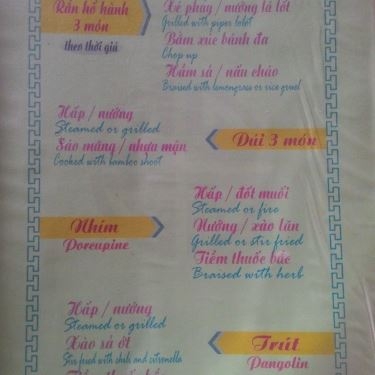 Rắn hổ hành
3 món
theo thời giá
Xé phay / nướng lá lốt
Grilled with piper lolot
Bằm xúc bánh đa
Chop up
Hầm sả / nấu cháo
Braised with lemongrass or rice gruel
Hấp / nướng
Steamed or grilled
Sào măng / nhựa mận
Cooked with bamboo shoot
Dúi 3 món
Nhím
Porcupine
Hấp / đốt muối
Steamed or fire
Nướng / xào lăn
Grilled or stir fried
Tiềm thuốc bắc
Braised with herb
Hấp / nướng
Steamed or grilled
Xào sả ớt
Stir fried with chili and citronella
Trút
Pangolin